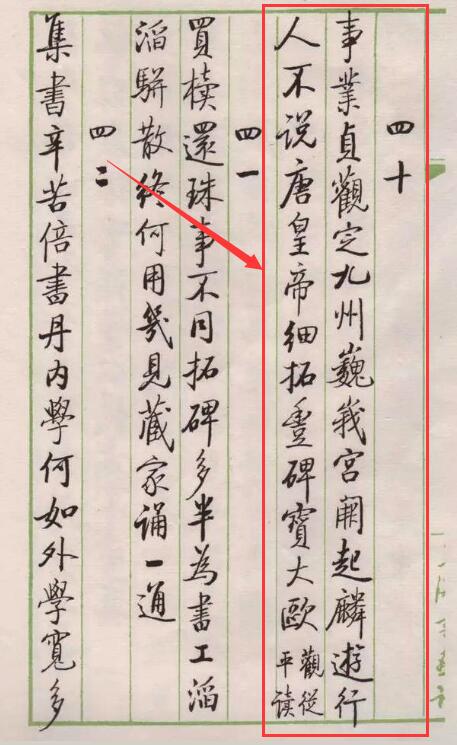 四十
事業貞觀定九州巍峩宮闕起麟遊行
人不说唐皇帝细拓豐碑寶大歐觀從平读
四一
買櫝還珠事不同拓碑多半為書工滔
滔駢散終何用幾見藏家誦一通
四二
集書辛苦倍書丹內學何如外學寬多